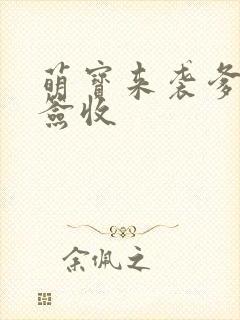 萌寳来袭爹
签收
余佩之